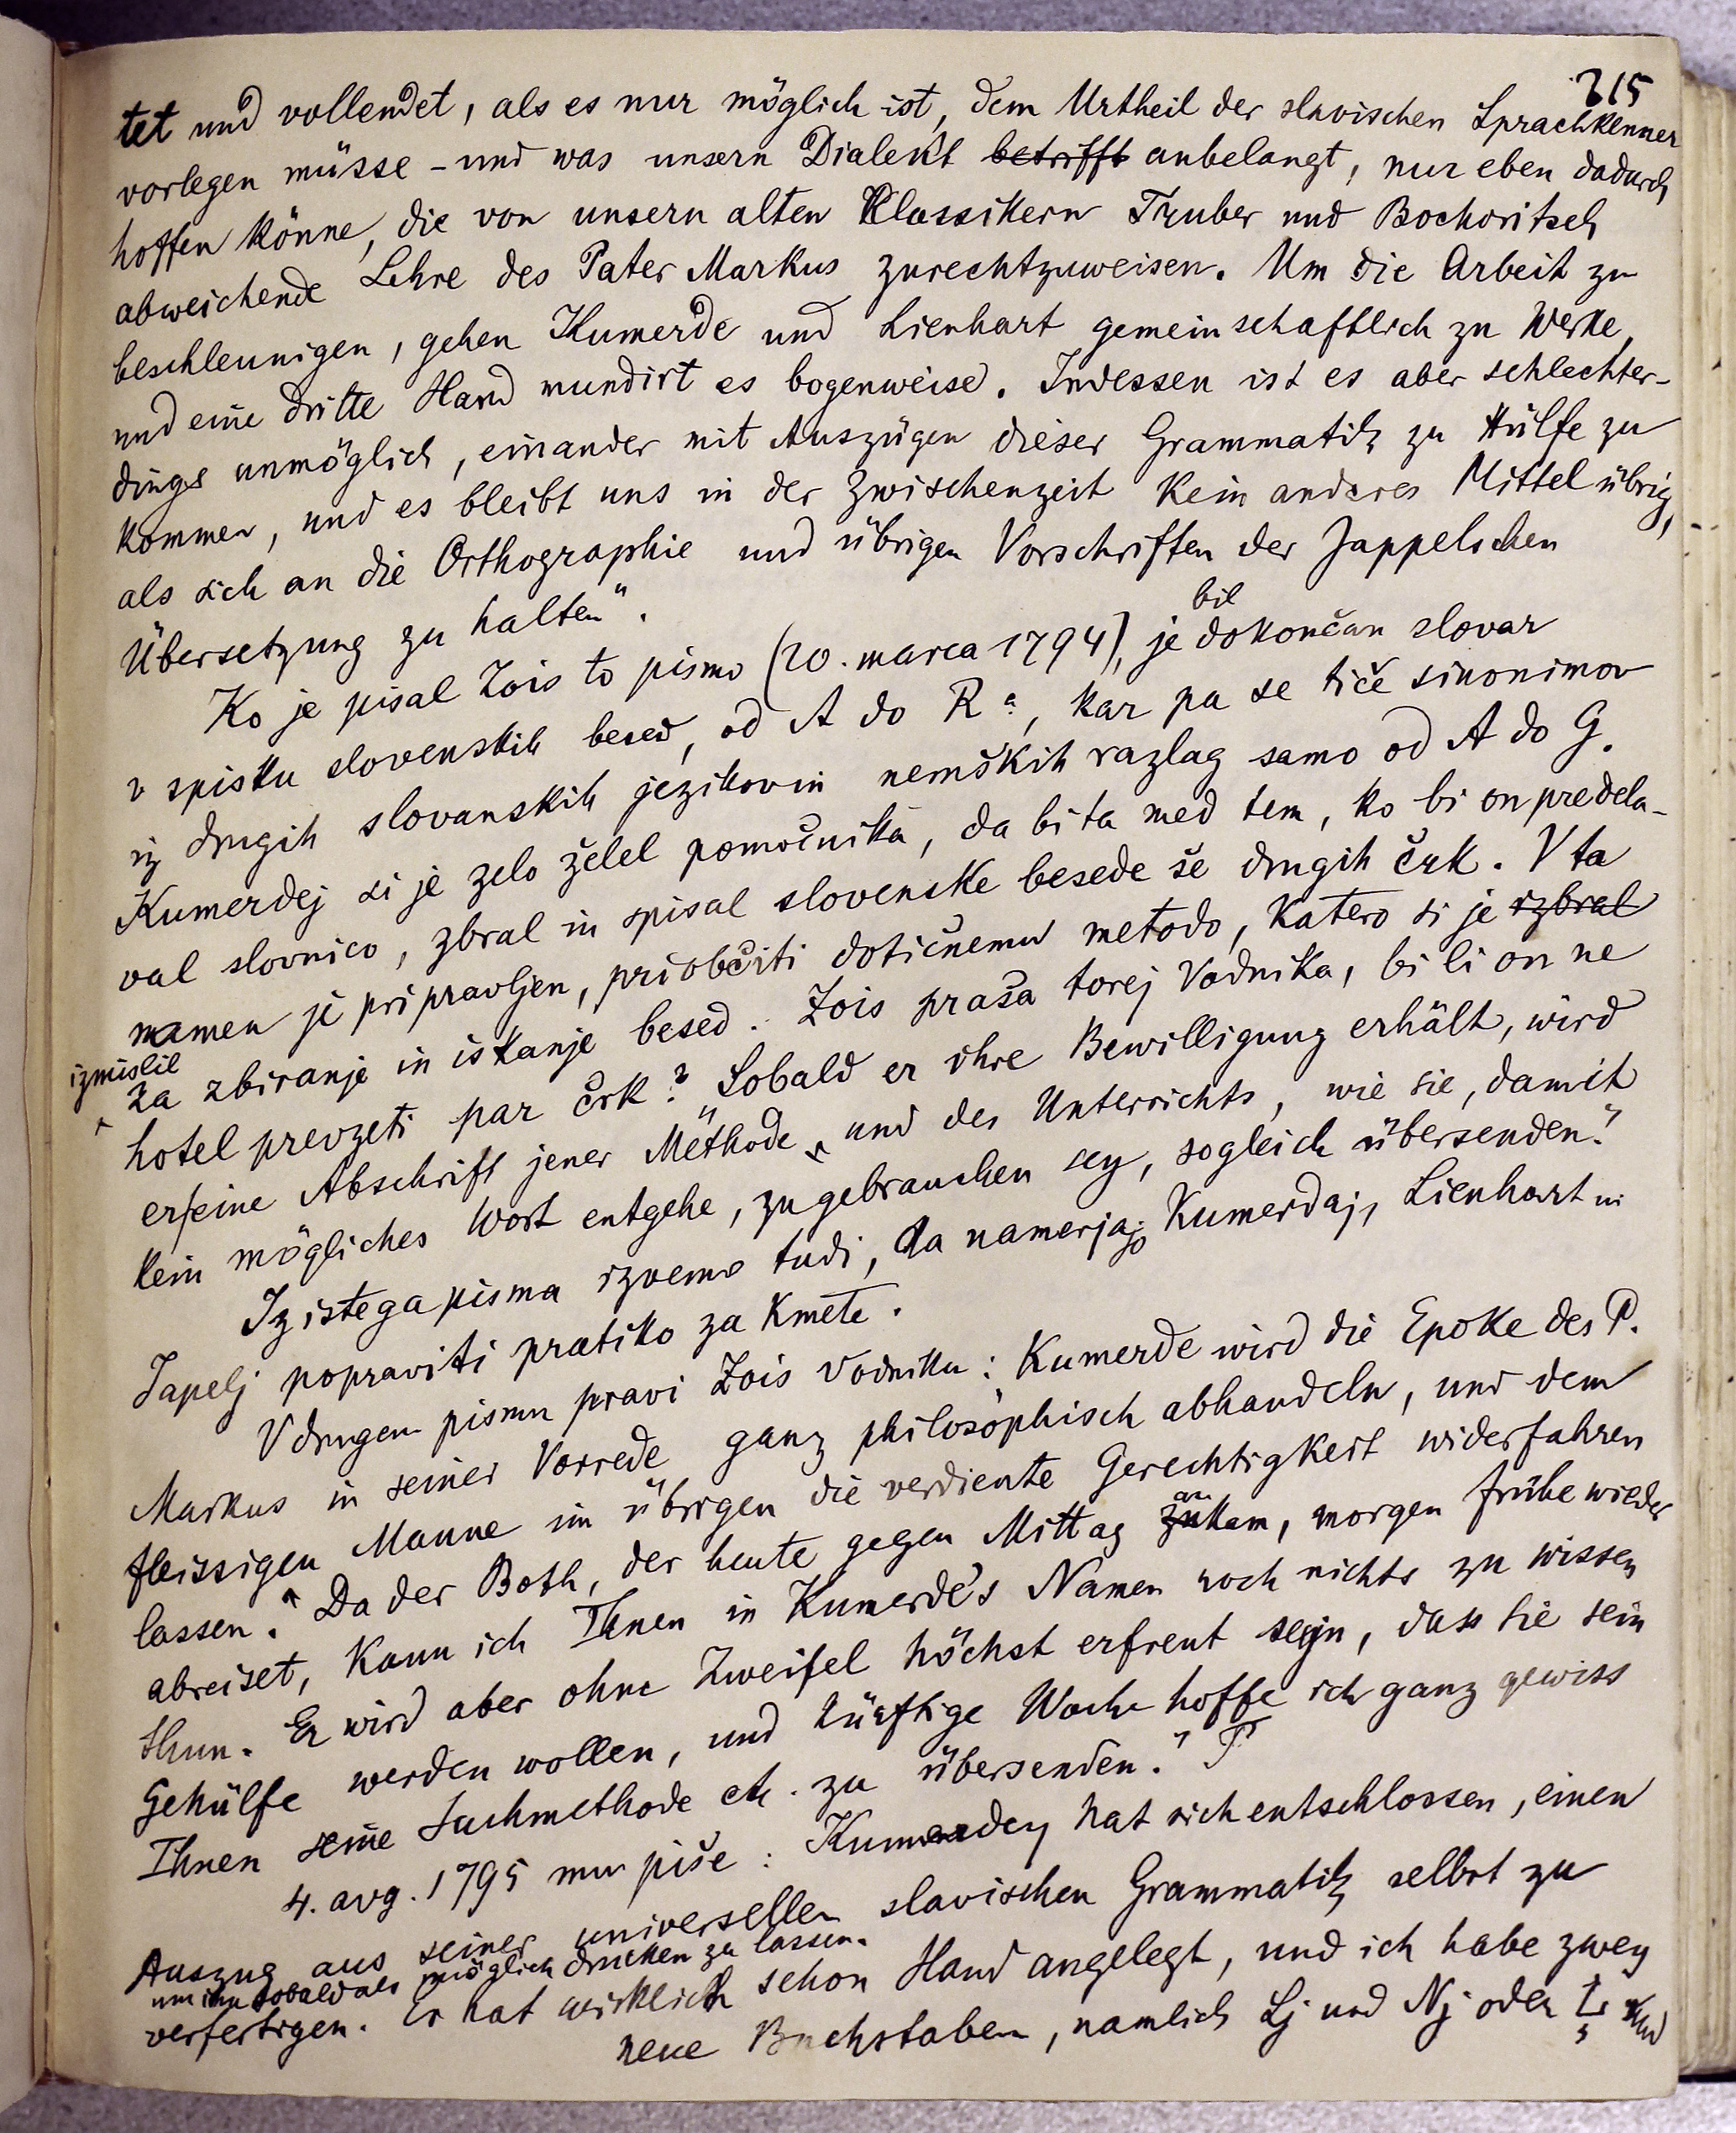 315
tet und vollendet, als es nur möglich ist, dem Urtheil der slavischen Sprachkenner
vorlegen müsse - und was unsern Dialekt betrifft anbelangt, nur eben dadurch
hoffen könne, die von unsern alten Klassikern Truber und Bochoritsch
abweichende Lehre des Pater Markus zurechtzuweisen. Um die Arbeit zu
beschleunigen, gehen Kumerde und Lienhart gemeinschaftlich zu Werke,
und eine dritte Hand mundirt es bogenweise. Indessen ist es aber schlechter-
dings unmöglich, einander mit Auszügen dieser Grammatik zu Hülfe zu
kommen, und es bleibt uns in der Zwischenzeit kein anderes Mittel übrig,
als sich an die Orthographie und übrigen Vorschriften der Jappelschen
Übersetzung zu halten".
bil
Ko je pisal Zois to pismo (20. marca 1794), je dokončan slovar
v spisku slovenskih besed, od A do R, kar pa se tiče sinonimov
iz drugih slovanskih jezikov in nemških razlag samo od A do G.
Kumerdej si je zelo želel pomočnika, da bi ta med tem, ko bi on predela-
val slovnico, zbral in spisal slovenske besede še drugih črk. V ta
namen je pripravljen, priobčiti dotičnemu metodo, katero si je izbral
izmislil
za zbiranje in iskanje besed. Zois praša torej Vodnika, bi li on ne
hotel prevzeti par črk? „Sobald er ihre Bewilligung erhält, wird
er eine Abschrift jener Methode, und des Unterrichts, wie sie, damit
kein mögliches Wort entgehe, zu gebrauchen sey, sogleich übersenden."
Iz istega pisma izvemo tudi, da namerjajo Kumerdaj, Lienhart in
Japelj popraviti pratiko za kmete.
V drugem pismu pravi Zois Vodniku: Kumerde wird die Epoke des P.
Markus in seiner Vorrede ganz philosophisch abhandeln, und dem
fleissigen Manne im übrigen die verdiente Gerechtigkeit widerfahren
lassen." Da der Both, der heute gegen Mittag zukam, morgen frühe wieder
an
abreiset, kann ich Ihnen in Kumerde's Namen noch nichts zu wissen
thun. Er wird aber ohne Zweifel höchst erfreut seyn, dass Sie sein
Gehülfe werden wollen, und künftige Woche hoffe ich ganz gewiss
Ihnen seine Suchmethode etc. zu übersenden."
4. avg. 1795 mu piše: Kumerdey hat sich entschlossen, einen
Auszug aus seiner universellen slavischen Grammatik selbst zu
um ihn sobald als möglich drucken zu lassen.
verfertigen. Er hat wirklich schon Hand angelegt, und ich habe zwey
neue Buchstaben, namlich Lj und Nj oder